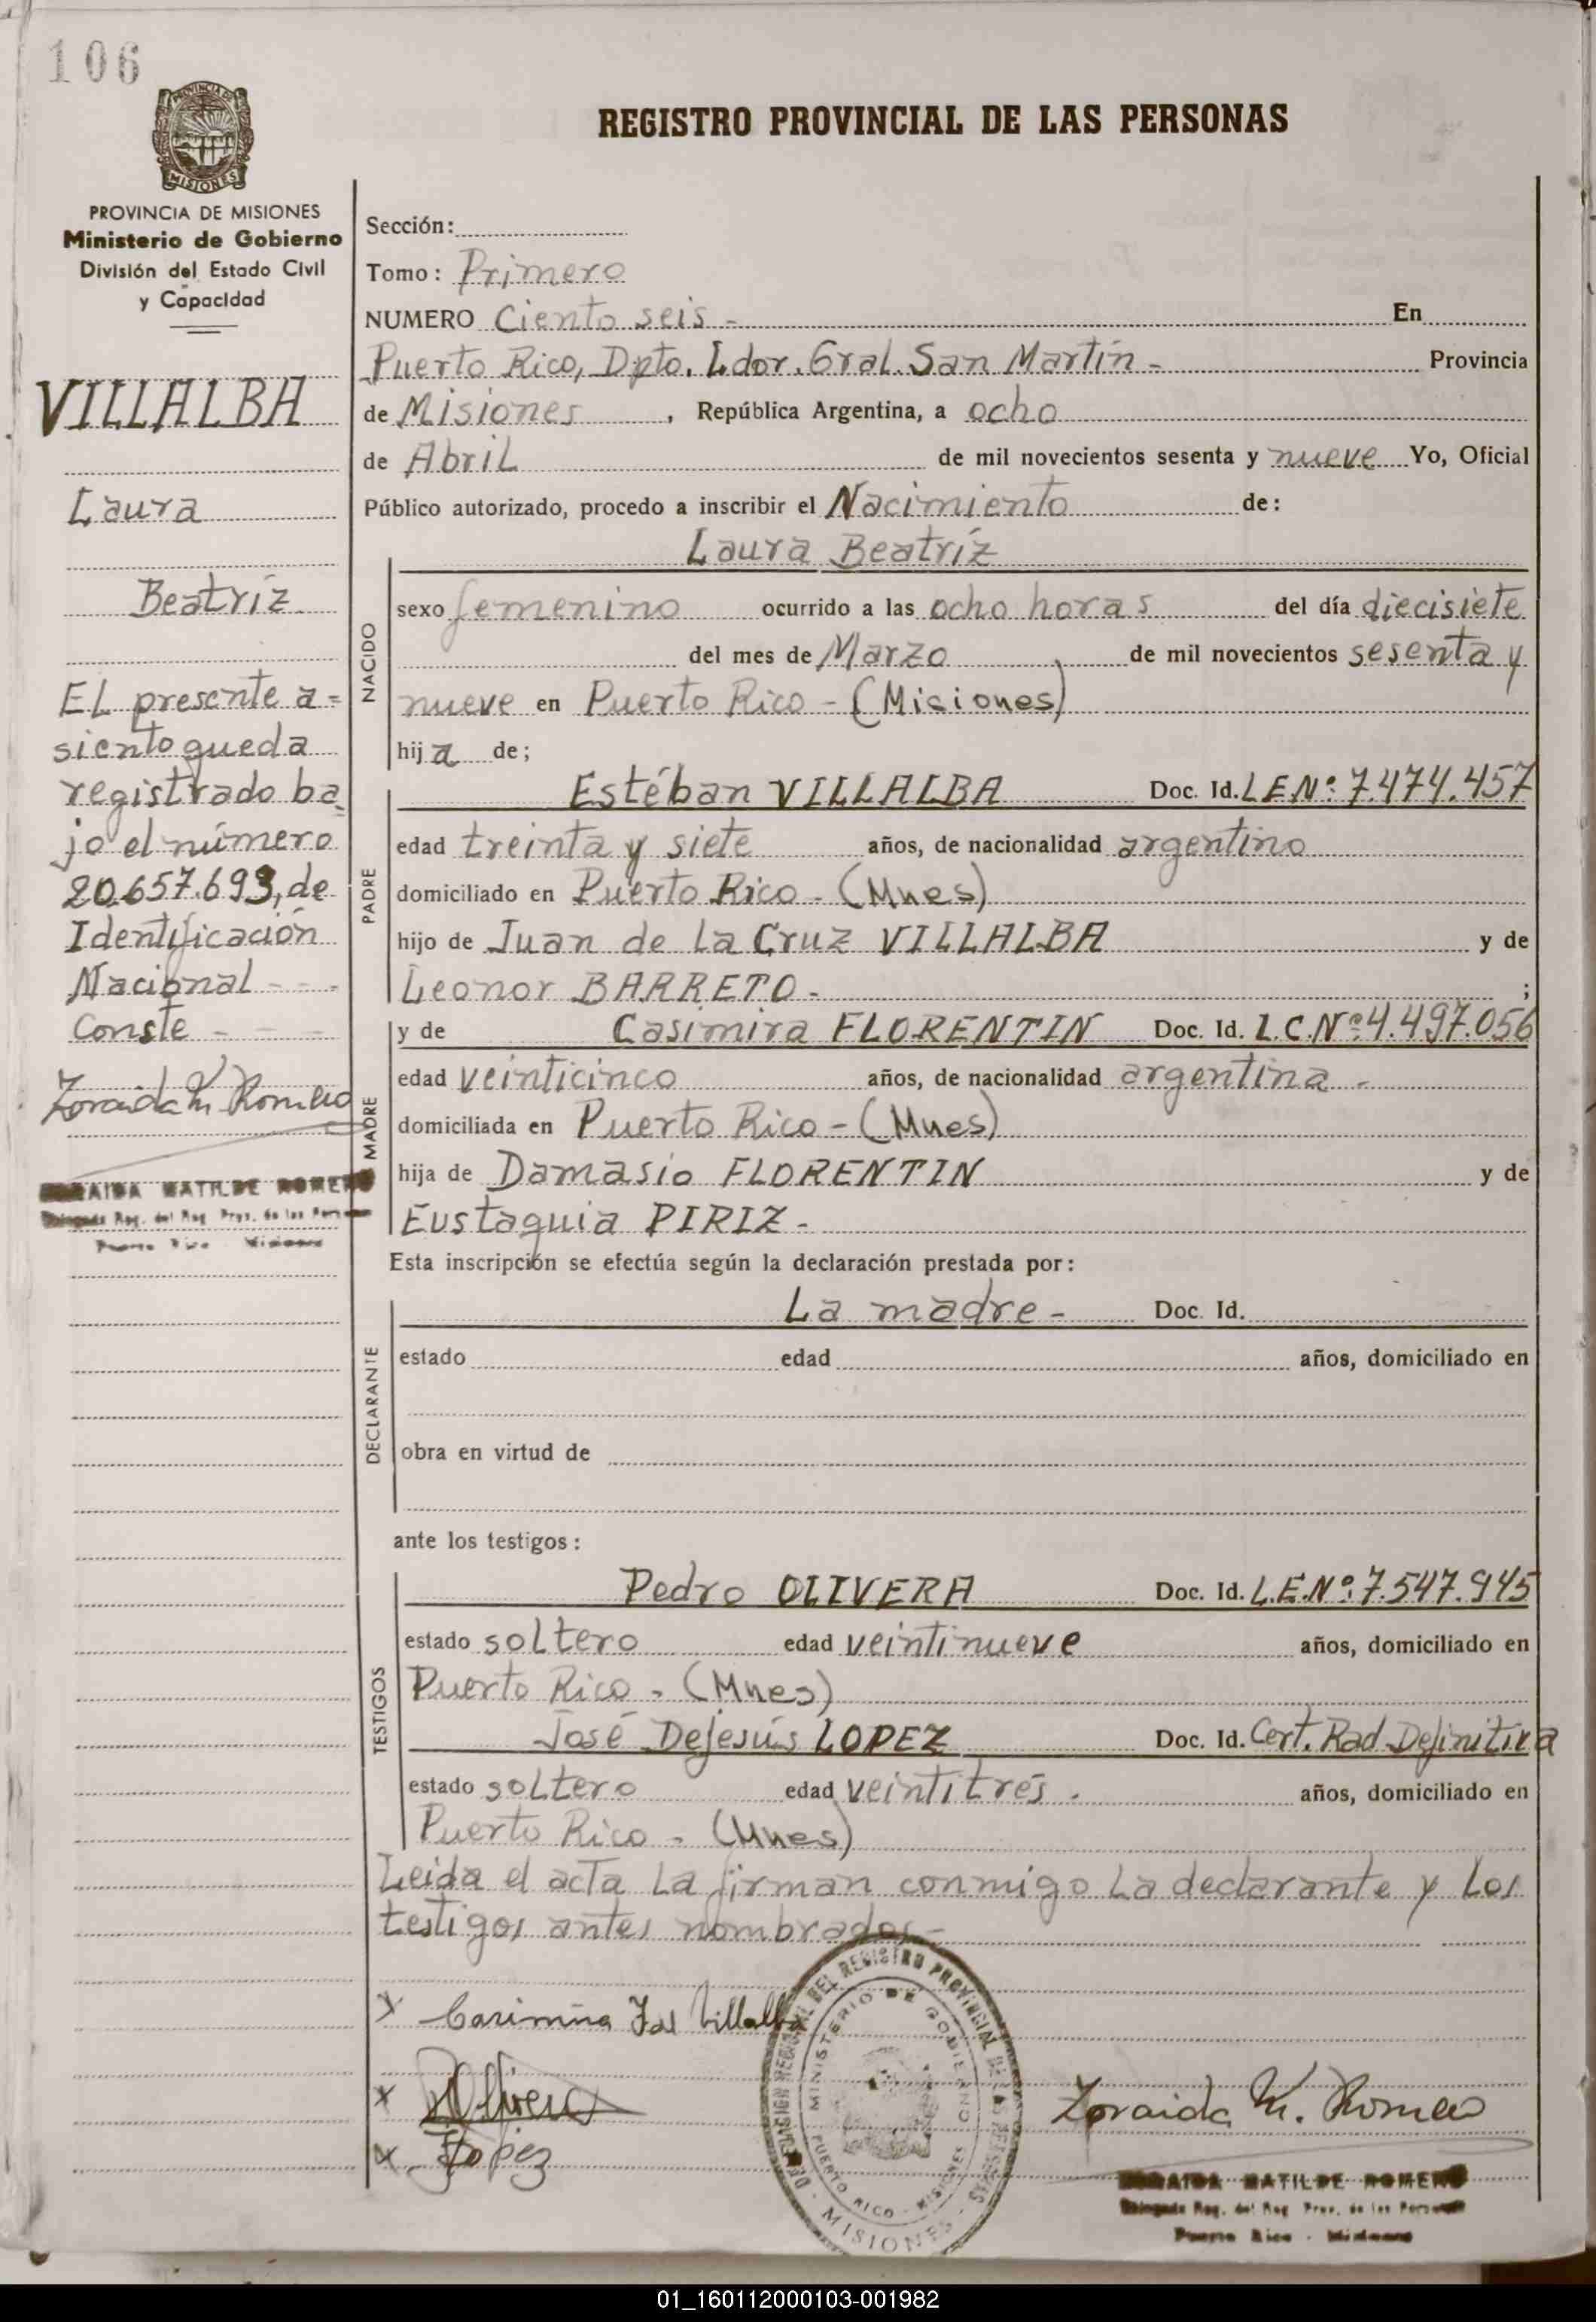 106
PROVINCIA DE MISIONES
REGISTRO PROVINCIAL DE LAS PERSONAS
PROVINCIA DE MISIONES
Ministerio de Gobierno
División del Estado Civil
y Capacidad
VILLALBA
Laura
Beatríz
EL presente a=
siento queda
registrado ba=
jo el número
20.657.693, de
Identificación
Nacional - - -
Conste - - -
Zoraida M. Romero
ZORAIDA MATILDE ROMERO
Delegada Reg. del Reg. Prov. de las Personas
Puerto Rico - Misiones
Sección:
Tomo: Primero
NUMERO Ciento seis - En
Puerto Rico, Dpto. Ldor. Gral. San Martín - Provincia
de Misiones, República Argentina, a ocho
de Abril de mil novecientos sesenta y nueve Yo, Oficial
Público autorizado, procedo a inscribir el Nacimiento de:
Laura Beatríz
NACIDO
sexo femenino ocurrido a las ocho horas del día diecisiete
del mes de Marzo de mil novecientos sesenta y
nueve en Puerto Rico - (Misiones)
hija de;
PADRE
Estéban VILLALBA Doc. Id. L.E.Nº: 7.474.457
edad treinta y siete años, de nacionalidad argentino
domiciliado en Puerto Rico - (Mnes)
hijo de Juan de La Cruz VILLALBA y de
Leonor BARRETO - ;
MADRE
y de Casimira FLORENTIN Doc. Id. L.C.Nº 4.497.056
edad veinticinco años, de nacionalidad argentina -
domiciliada en Puerto Rico - (Mnes)
hija de Damasio FLORENTIN y de
Eustaquia PIRIZ -
Esta inscripción se efectúa según la declaración prestada por:
DECLARANTE
La madre - Doc. Id.
estado edad años, domiciliado en
obra en virtud de
ante los testigos:
TESTIGOS
Pedro OLIVERA Doc. Id. L.E.Nº: 7.547.945
estado soltero edad veintinueve años, domiciliado en
Puerto Rico - (Mnes)
José Dejesús LOPEZ Doc. Id. Cert. Rad. Definitiva
estado soltero edad veintitrés. años, domiciliado en
Puerto Rico - (Mnes)
Leida el acta La firman conmigo La declarante y Los
testigos antes nombrados -
x Casimira Villalba
x Olivera
x Lopez
DELEGACION REGIONAL DEL REGISTRO PROVINCIAL DE LAS PERSONAS - MISIONES -
MINISTERIO DE GOBIERNO
PUERTO RICO - MISIONES
Zoraida M. Romero
ZORAIDA MATILDE ROMERO
Delegada Reg. del Reg. Prov. de las Personas
Puerto Rico - Misiones
01_160112000103-001982